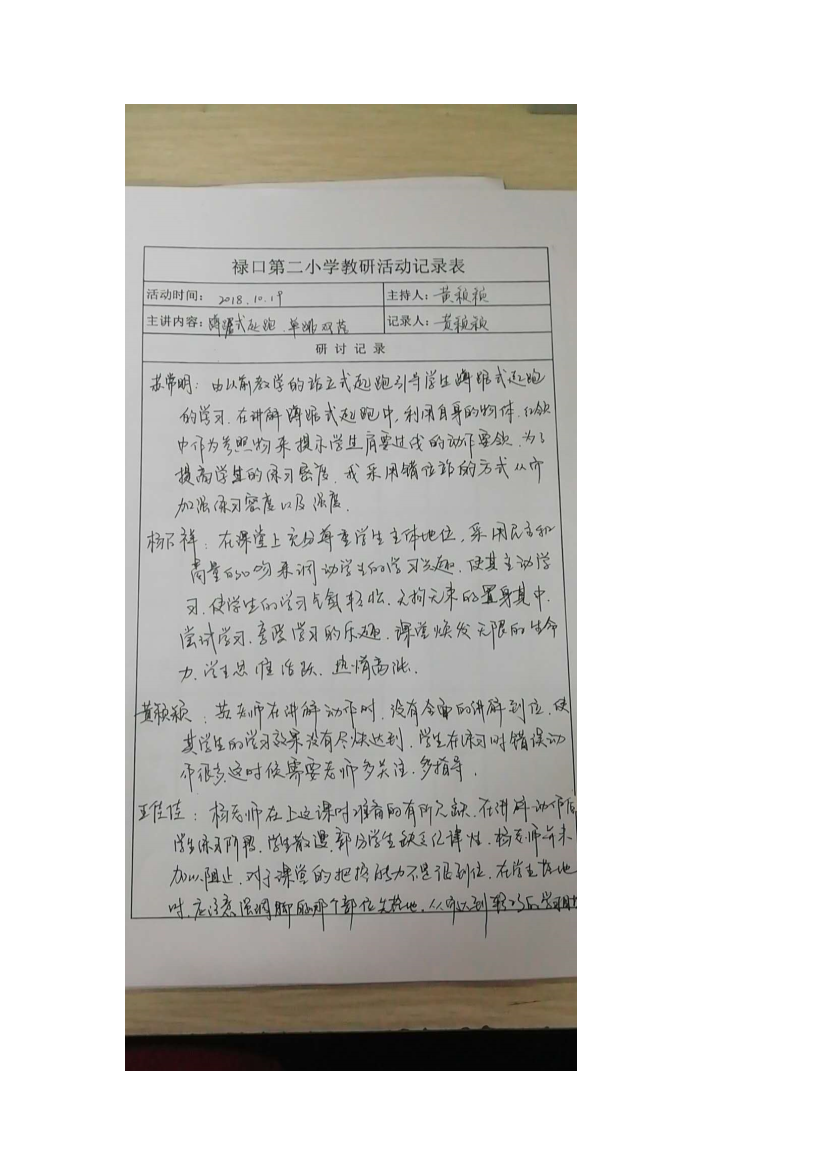 禄口第二小学教研活动记录表
活动时间：2018.10.19 主持人：黄颖颖
主讲内容：蹲踞式起跑、单跳双落 记录人：黄颖颖
研讨记录
常明：由以前教学的站立式起跑引导学生蹲踞式起跑
的学习.在讲解蹲踞式起跑中,利用自身的物体.红领
巾作为参照物来提示学生肩要过线的动作要领.为了
提高学生的练习密度.我采用错位站的方式从而
加强练习密度以及强度.
杨祥：在课堂上充分尊重学生主体地位,采用民主和
商量的口吻来调动学生的学习兴趣.使其主动学
习.使学生的学习气氛轻松.无拘无束的置身其中.
尝试学习.享受学习的乐趣.课堂焕发无限的生命
力.学生思维活跃.热情高涨.
黄颖颖：老师在讲解动作时.没有全面的讲解到位.使
其学生的学习效果没有尽快达到.学生在练习时错误动
作很多.这时候需要老师多关注.多指导.
王佳佳：杨老师在上这课时准备的有所欠缺.在讲解动作后
学生练习阶段.学生散漫.部分学生缺乏纪律性.杨老师并未
加以阻止.对于课堂的把控能力不是很到位.在学生落地
时.应注意强调脚的那个部位先落地.从而达到学习